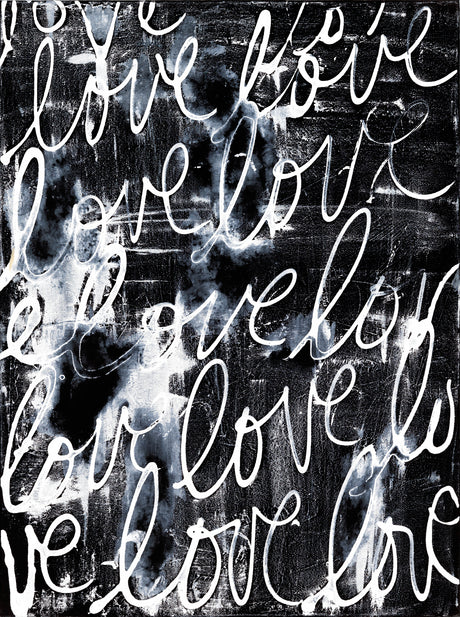 love
love love
love love
e love lov
love love lo
ve love love